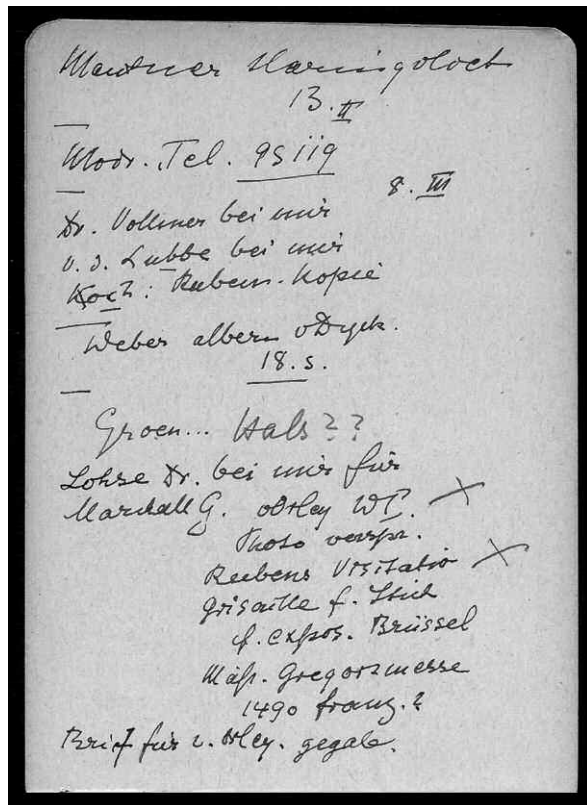 Mautner
13. II
Modr. Tel. 95119
8. III
Dr. Vollmer bei mir
v. d. Lübbe bei mir
Koch: Rubens-Kopie
Weber albern vDyck.
18. 5.
Groen... Hals??
Lohse Dr. bei mir für
Marschall G. vOrley WT.
Photo verspr.
Rubens Visitatio
Grisaille f. Stich
f. expos. Brüssel
Gregorsmesse
1490 franz.?
Brief für v. Orley. gegeb.